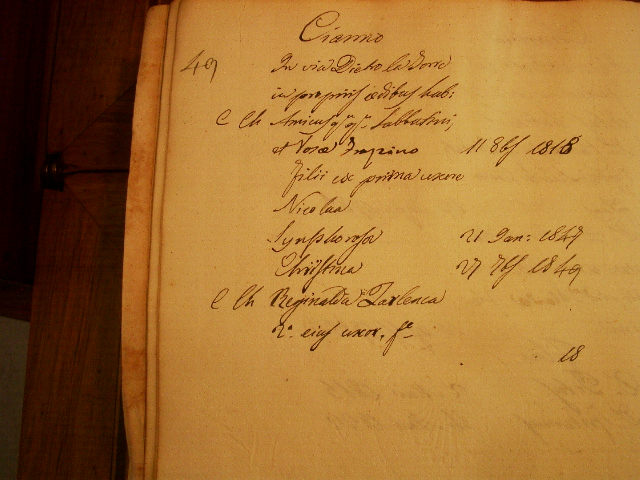 Cianno
49 In via Dietro la Torre
in propriis ædibus hab:
C Ch Amicus qm qm Sabbatini,
et Rosæ Trapino 11 8bs 1818
Filii ex prima uxore
Nicolaa
Symphorosa 21 Jan: 1847
Christina 27 7bs 1849
C Ch Reginalda Tarlenca
2a. eius uxor,
18